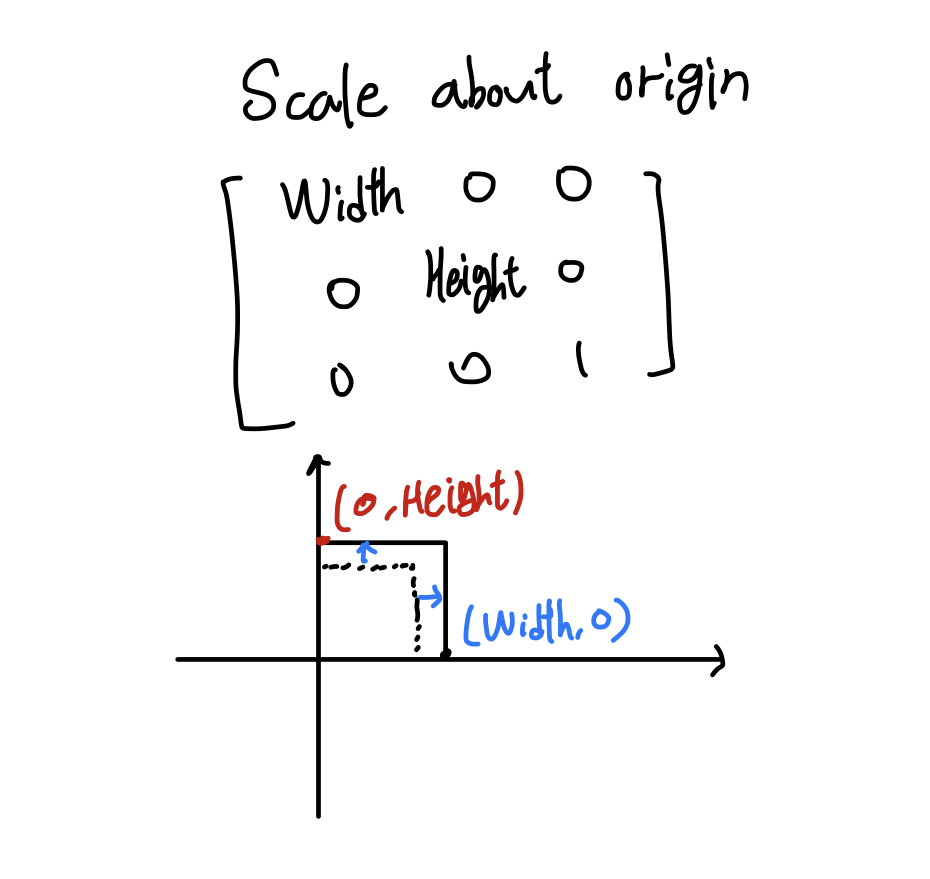 Scale about origin
Width 0 0
0 Height 0
0 0 1
(0, Height)
(Width, 0)